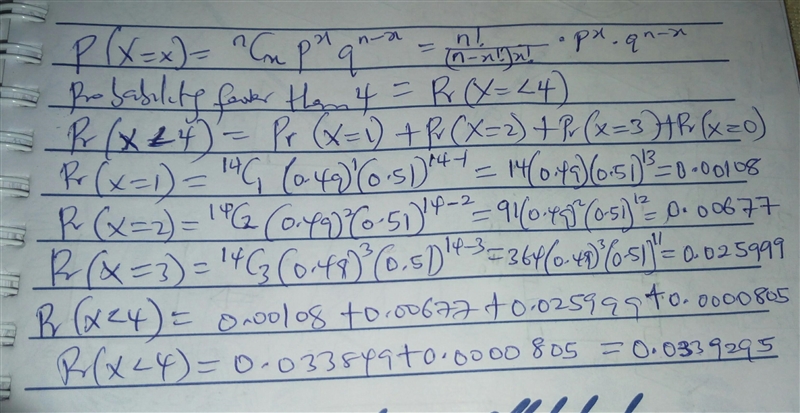 P(X=x) = ⁿCₙ pˣ qⁿ⁻ˣ = n!/(n-x!)x! · pˣ · qⁿ⁻ˣ
Probability fewer than 4 = Pr(X=<4)
Pr(X<4) = Pr(X=1) + Pr(X=2) + Pr(x=3) + Pr(x=0)
Pr(x=1) = ¹⁴C₁ (0.49)¹(0.51)¹⁴⁻¹ = 14(0.49)(0.51)¹³ = 0.00108
Pr(x=2) = ¹⁴C₂ (0.49)²(0.51)¹⁴⁻² = 91(0.49)²(0.51)¹² = 0.00677
Pr(X=3) = ¹⁴C₃ (0.49)³(0.51)¹⁴⁻³ = 364(0.49)³(0.51)¹¹ = 0.025999
Pr(X<4) = 0.00108 + 0.00677 + 0.025999 + 0.0000805
Pr(X<4) = 0.033849 + 0.0000805 = 0.0339295